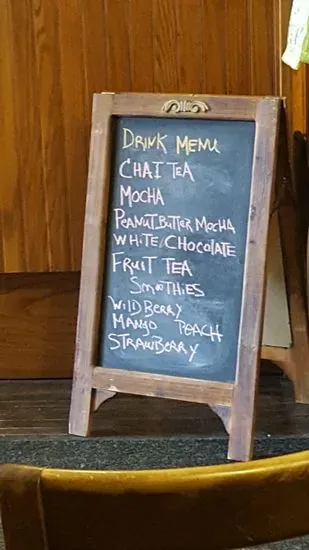 DRINK MENU
CHAI TEA
MOCHA
PEANUT BUTTER MOCHA
WHITE CHOCOLATE
FRUIT TEA
SMOOTHIES
WILDBERRY
MANGO PEACH
STRAWBERRY